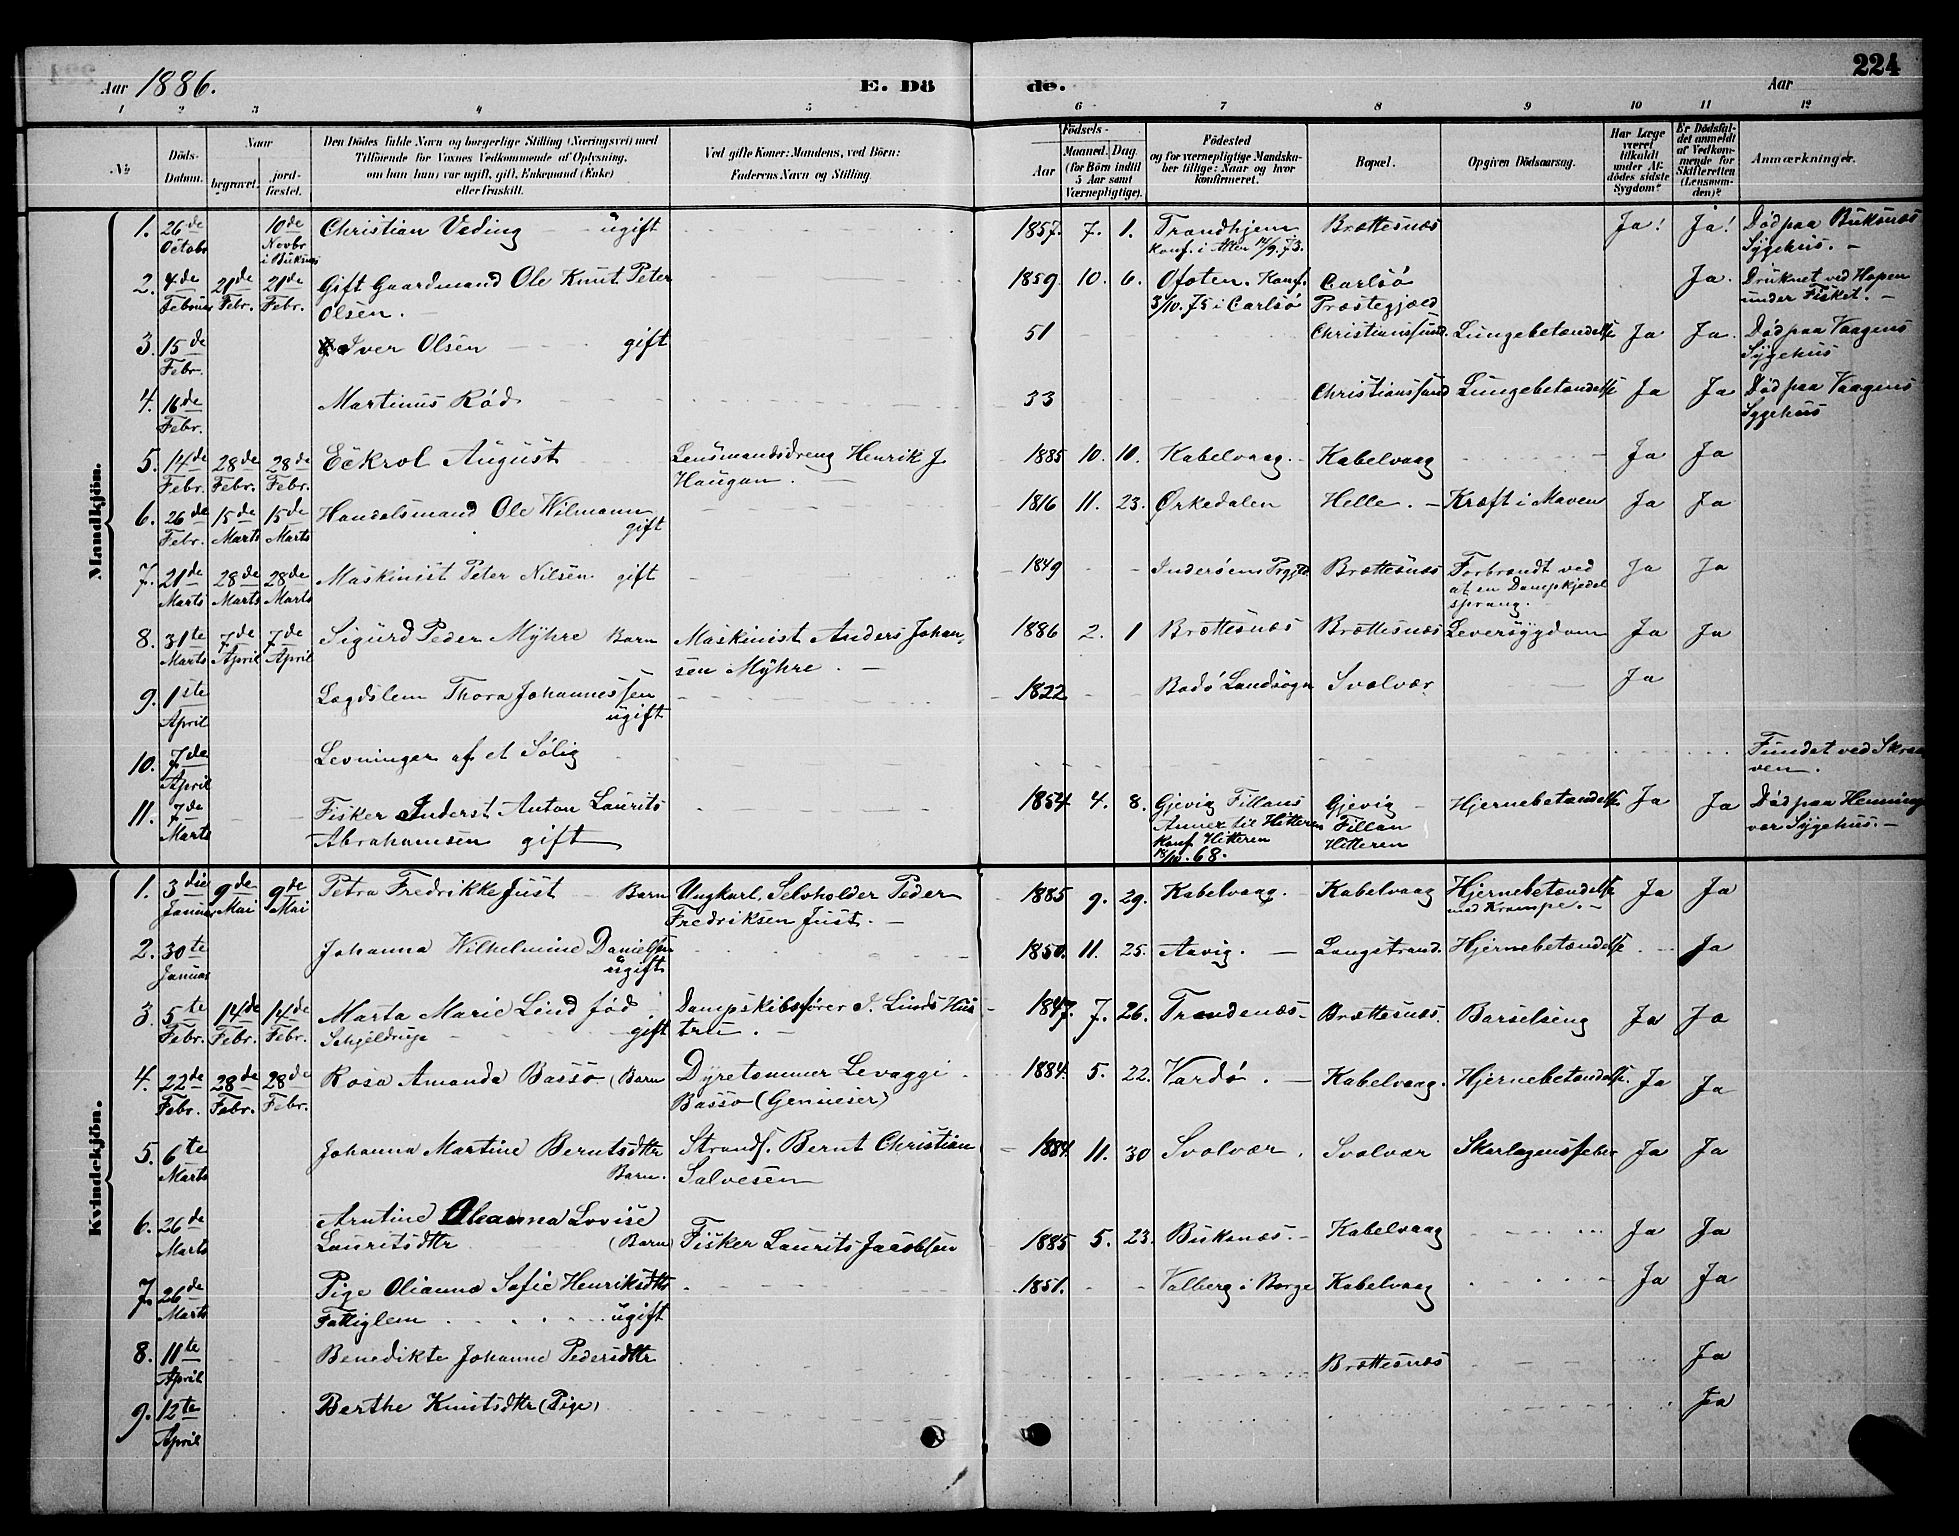 224
Aar 1886.
E. Dö
de.
Aar
1 2 3 4 5 6 7 8 9 10 11 12
№
Döds-Datum.
Naar
begravet.
jord-fæstet.
Den Dödes fulde Navn og borgerlige Stilling (Næringsvei) med
Tilföiende for Voxnes Vedkommende af Oplysning,
om han (hun) var ugift, gift, Enkemand (Enke)
eller fraskilt.
Ved gifte Koner: Mandens, ved Börn:
Faderens Navn og Stilling.
Födsels-
Aar
Maaned. Dag
(for Börn indtil
5 Aar samt
Værnepligtige).
Födested
og for værnepligtige Mandska-
ber tillige: Naar og hvor
konfirmeret.
Bopæl.
Opgiven Dödsaarsag.
Har Læge
været
tilkaldt
under Af-
dödes sidste
Sygdom?
Er Dödsfal-
det anmeldt
af Vedkom-
mende for
Skifteretten
(Lensman-
den)?
Anmærkninger.
Mandkjön.
1. 26de Octobr 10de Novbr i Buksnæs Christian Veding ugift 1857. 7. 1. Trondhjem Konf. i 14/9. 73. Brættesnæs Ja! Ja! Død paa Buksnæs Sygehus. –
2. 4de Februar 21de Febr. 21de Febr. Gift Gaardmand Ole Knut Peter Olsen. 1859 10. 6. Ofoten. Konf. 3/10. 75 i Carlsö Carlsö Præstegjæld Ja. Druknet ved Hopen under Fisket. –
3. 15de Febr. Iver Olsen gift 51 Christianssund. Lungebetændelse Ja Ja. Død paa Vaagens Sygehus
4. 16de Febr. Martinus Röd 33 Christianssund Lungebetændelse Ja Ja Død paa Vaagens Sygehus
5. 14de Febr. 28de Febr. 28de Febr. Eckrol August Lensmandsdreng Henrik J Haugan. 1885 10. 10. Kabelvaag. Kabelvaag Ja Ja
6. 26de Febr. 15de Marts 15de Marts Handelsmand Ole Wilmann gift 1816 11. 23. Örkedalen Helle. – Kræft i Maven Ja Ja
7. 21de Marts 28de Marts 28de Marts Maskinist Peter Nilsen gift 1849 Inderöens Prgjld. Brættesnæs Forbrændt ved at en Dampkjedel sprang. Ja Ja
8. 31te Marts 7de April 7de April Sigurd Peder Myhre Barn Maskinist Anders Johan- sen Myhre. 1886 2. 1 Brættesnæs Brættesnæs Leversygdom Ja Ja
9. 1ste April Lægdslem Thora Johannessen ugift 1822 Bodö Landsogn Svolvær Ja
10. 7de April Levninger af et Sölig Fundet ved Skraa- ven.
11. 7de Marts Fisker Inderst Anton Laurits Abrahamsen gift 1854 4. 8. Gjevig Fillans Annex til Hitteren Konf. Hitteren 18/10. 68. Gjevig – Fillan Hitteren Hjernebetændelse Ja Ja Død paa Henning- vær Sygehus. –
Kvindekjön.
1. 3die Januar 9de Mai 9de Mai Petra Fredrikke Just Barn Ungkarl, Selvholder Peder Fredriksen Just. – 1885 9. 29. Kabelvaag. – Kabelvaag Hjernebetændelse med Krampe. – Ja Ja
2. 30te Januar Johanna Wilhelmine Danielsen ugift 1850. 11. 25. Aavig. – Langstrand. Hjernebetændelse Ja
3. 5te Febr. 14de Febr. 14de Febr. Marta Marie Lind föd Schjeldrup gift Dampskibsförer J. Linds Hus- tru. – 1847. 7. 26. Trondenæs Brættesnæs. Barselseng Ja Ja
4. 22de Febr. 28de Febr. 28de Febr. Rosa Amanda Basso (Barn Dyretæmmer Levaggi Basso (Genueser) 1884. 5. 22. Vardö. – Kabelvaag. Hjernebetændelse. Ja Ja
5. 6te Marts Johanna Martine Berntsdttr Barn. Strands. Bernt Christian Salvesen 1884 11. 30 Svolvær. Svolvær Skarlagensfeber Ja Ja
6. 26de Marts Arntine Oleanna Lovise Lauritsdttr (Barn) Fisker Laurits Jacobsen 1885 5. 23. Buksnæs. – Kabelvaag Ja Ja
7. 26de Marts Pige Olianna Sofie Henriksdttr Fattiglem ugift 1851. Valberg i Borge Kabelvaag Ja Ja
8. 11te April Benedikte Johanne Pedersdttr Brættesnæs Ja
9. 12te April Berthe Knutsdttr (Pige) Ja